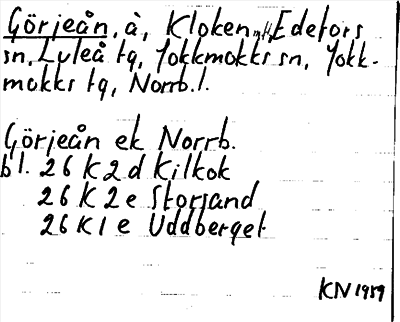 Görjeån, å, Kloken, Edefors
sn, Luleå tg, Jokkmokks sn, Jokk-
mokks tg, Norrb.l.
Görjeån ek Norrb.
bl. 26 K 2 d Kilkok
26 K 2 e Storsand
26 K 1 e Uddberget
KN 1959